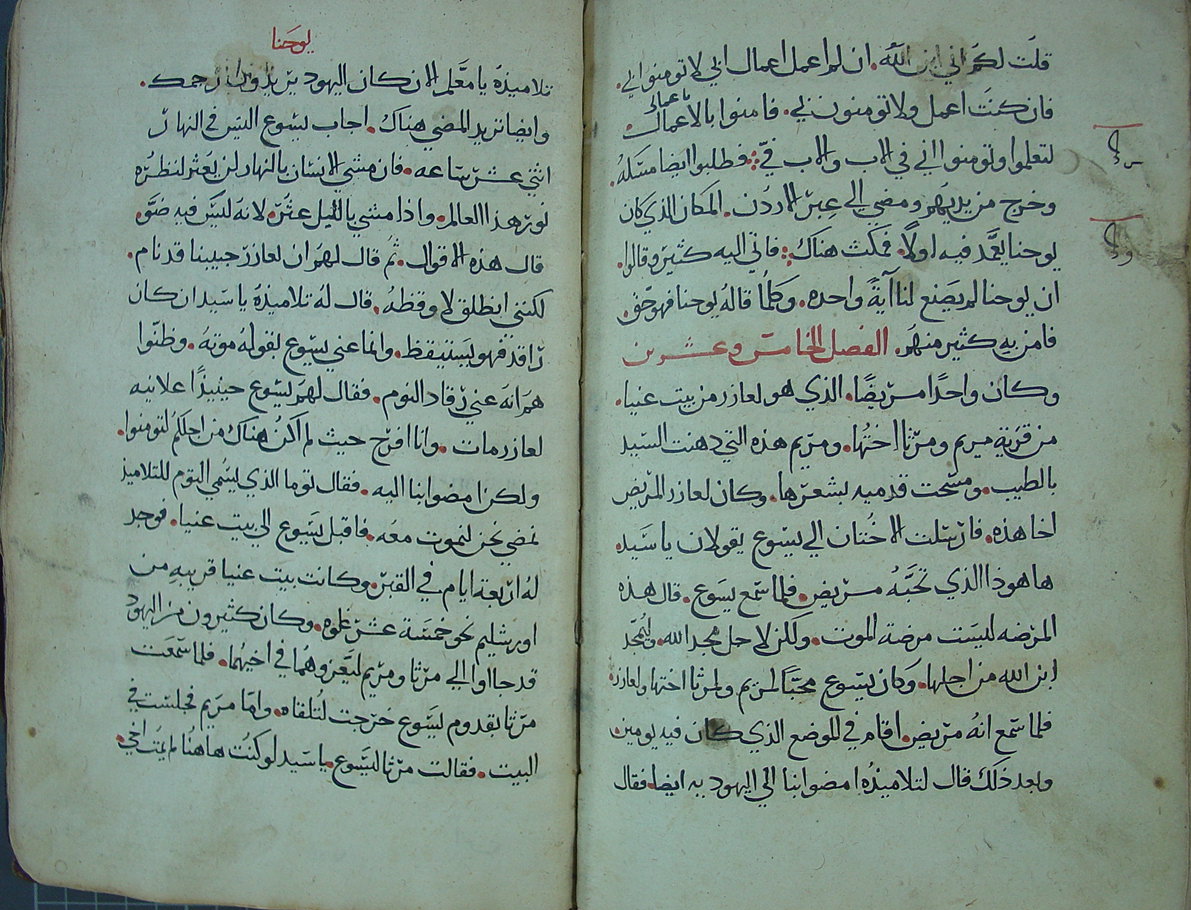 قلت لكم اني ابن الله. ان لم اعمل اعمال ابي لا تومنوا بي.
فان كنت اعمل ولا تومنون بي. فامنوا بالاعمال.
باعمالي
لتعلموا وتومنوا اني في الاب والاب فيّ. فطلبوا ايضا مسكه.
وخرج من يديهم ومضي الي عبر الاردن. المكان الذي كان
يوحنا يعمد فيه اولاً. فمكث هناك. فاتي اليه كثير وقالوا.
ان يوحنا لم يصنع لنا آيةً واحده. وكلما قاله يوحنا فهو حق.
فامن به كثير منهم. الفصل الخامس وعشرين
وكان واحدًا مريضًا. الذي هو لعازر من بيت عنيا.
من قرية مريم ومرثا اختها. ومريم هذه التي دهنت السيد
بالطيب. ومسحت قدميه بشعرها. وكان لعازر المريض
اخا هذه. فارسلت الاختان الي يسوع يقولان يا سيد.
ها هوذا الذي تحبه مريض. فلما سمع يسوع. قال هذه
المرضه ليست مرضة الموت. ولكن لاجل مجد الله. وليمجد
ابن الله من اجلها. وكان يسوع محبًا لمريم ولمرثا اختها ولعازر.
فلما سمع انه مريض. اقام في الموضع الذي كان فيه يومين.
وبعد ذلك قال لتلاميذه امضوا بنا الي اليهوديه ايضا. فقال
يوحنا
تلاميذه يا معلم الان كان اليهود يريدون رجمك.
وايضا تريد المضي هناك. اجاب يسوع اليس في النهار
اثني عشر ساعه. فان مشي الانسان بالنهار لن يعثر لنظره
نور هذا العالم. واذا مشي بالليل عثر. لانه ليس فيه ضوّ.
قال هذه الاقوال. ثم قال لهم ان لعازر حبيبنا قد نام.
لكنني انطلق لاوقظه. قال له تلاميذه يا سيد ان كان
راقد فهو يستيقظ. وانما عني يسوع بقوله موته. وظنّوا
هم انه عني رقاد النوم. فقال لهم يسوع حينيذًا علانيه
لعازر مات. وانا افرح حيث لم اكن هناك من اجلكم لتومنوا.
ولكن امضوا بنا اليه. فقال توما الذي يسمي التوم للتلاميذ
نمضي نحن لنموت معه. فاقبل يسوع الي بيت عنيا. فوجد
له اربعة ايام في القبر. وكانت بيت عنيا قريبه من
اورشليم نحو خمسة عشر غلوه. وكان كثيرون من اليهود
قد جاوا الي مرثا ومريم ليعزوهما في اخيهما. فلما سمعت
مرثا بقدوم يسوع خرجت لتلقاه. واما مريم فجلست في
البيت. فقالت مرثا ليسوع. يا سيد لو كنت هاهنا لم يمت اخي.